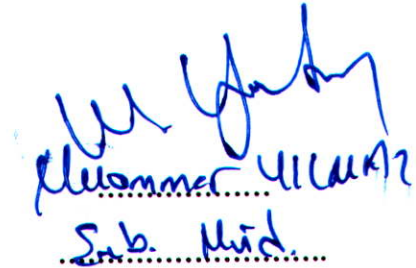 Muammer YILMAZ
Şub. Müd.